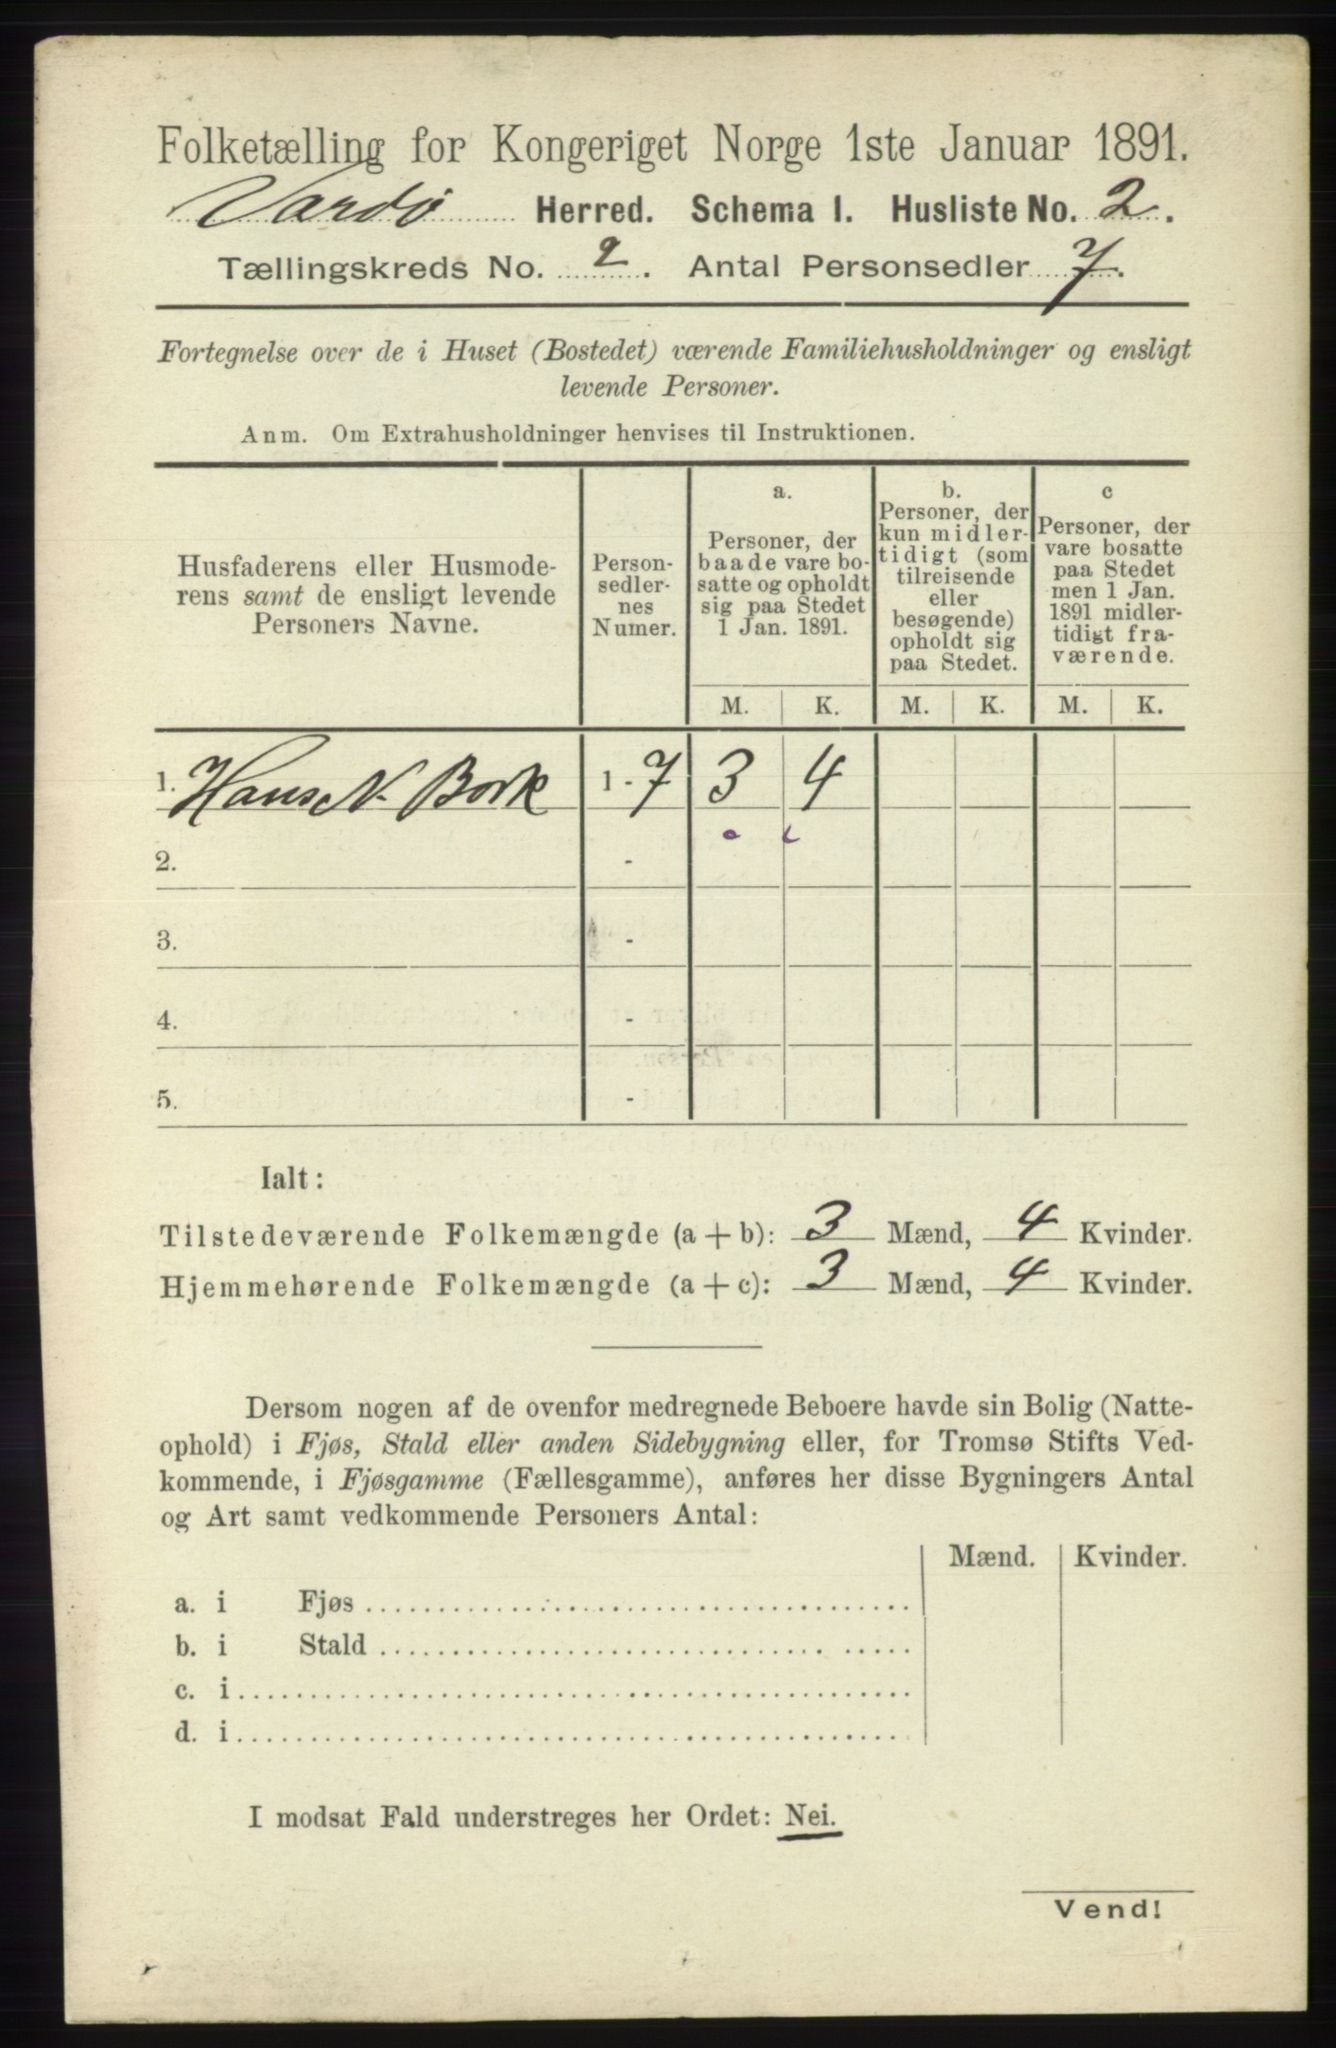 Folketælling for Kongeriget Norge 1ste Januar 1891.
Vardø Herred. Schema I. Husliste No. 2.
Tællingskreds No. 2. Antal Personsedler 7.
Fortegnelse over de i Huset (Bostedet) værende Familiehusholdninger og ensligt
levende Personer.
Anm. Om Extrahusholdninger henvises til Instruktionen.
Husfaderens eller Husmode-
rens samt de ensligt levende
Personers Navne.
Person-
sedler-
nes
Numer.
a.
Personer, der
baade vare bo-
satte og opholdt
sig paa Stedet
1 Jan. 1891.
b.
Personer, der
kun midler-
tidigt (som
tilreisende
eller
besøgende)
opholdt sig
paa Stedet.
c
Personer, der
vare bosatte
paa Stedet
men 1 Jan.
1891 midler-
tidigt fra-
værende.
M. K. M. K. M. K.
1. Hans N. Bork 1 - 7 3 4
2. -
3. -
4. -
5. -
Ialt:
Tilstedeværende Folkemængde (a + b): 3 Mænd, 4 Kvinder.
Hjemmehørende Folkemængde (a + c): 3 Mænd, 4 Kvinder.
Dersom nogen af de ovenfor medregnede Beboere havde sin Bolig (Natte-
ophold) i Fjøs, Stald eller anden Sidebygning eller, for Tromsø Stifts Ved-
kommende, i Fjøsgamme (Fællesgamme), anføres her disse Bygningers Antal
og Art samt vedkommende Personers Antal:
Mænd. Kvinder.
a. i Fjøs
b. i Stald
c. i
d. i
I modsat Fald understreges her Ordet: Nei.
Vend!